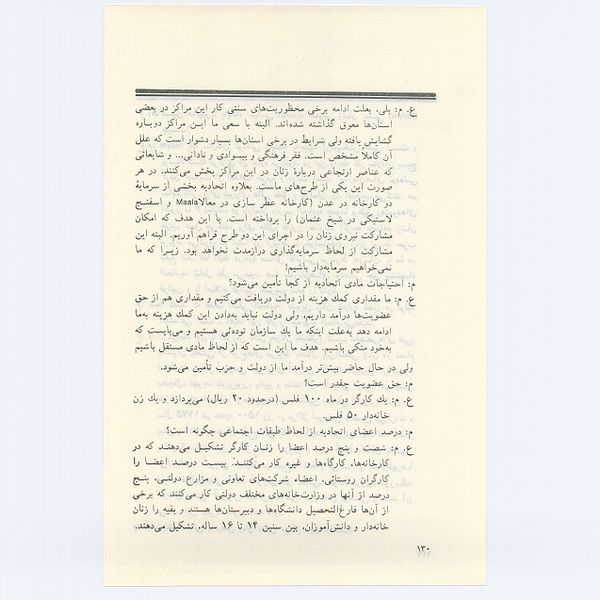 ع. م: بلی، بعلت ادامه برخی محظوریت‌های سنتی کار این مراکز در بعضی
استان‌ها معوق گذاشته شده‌اند. البته با سعی ما این مراکز دوباره
گشایش یافته ولی شرایط در برخی استان‌ها بسیار دشوار است که علل
آن کاملاً مشخص است. فقر فرهنگی و بیسوادی و نادانی... و شایعاتی
که عناصر ارتجاعی دربارهٔ زنان در این مراکز پخش می‌کنند. در هر
صورت این یکی از طرح‌های ماست. بعلاوه اتحادیه بخشی از سرمایهٔ
دو کارخانه در عدن (کارخانه عطر سازی در معالا Maala و اسفنج
لاستیکی در شیخ عثمان) را پرداخته است. با این هدف که امکان
مشارکت نیروی زنان را در اجرای این دو طرح فراهم آوریم. البته این
مشارکت از لحاظ سرمایه‌گذاری درازمدت نخواهد بود. زیرا که ما
نمی‌خواهیم سرمایه‌دار باشیم!
م: احتیاجات مادی اتحادیه از کجا تأمین می‌شود؟
ع. م: ما مقداری کمك هزینه از دولت دریافت می‌کنیم و مقداری هم از حق
عضویت‌ها درآمد داریم، ولی دولت نباید به‌دادن این کمك هزینه به‌ما
ادامه دهد به‌علت اینکه ما یك سازمان توده‌ئی هستیم و می‌بایست که
به‌خود متکی باشیم. هدف ما این است که از لحاظ مادی مستقل باشیم
ولی در حال حاضر بیش‌تر درآمد ما از دولت و حزب تأمین می‌شود.
م: حق عضویت چقدر است؟
ع. م: یك کارگر در ماه ۱۰۰ فلس (درحدود ۲۰ ریال) می‌پردازد و یك زن
خانه‌دار ۵۰ فلس.
م: درصد اعضای اتحادیه از لحاظ طبقات اجتماعی چگونه است؟
ع. م: شصت و پنج درصد اعضا را زنان کارگر تشکیل می‌دهند که در
کارخانه‌ها، کارگاه‌ها و غیره کار می‌کنند. بیست درصد اعضا را
کارگران روستائی، اعضاء شرکت‌های تعاونی و مزارع دولتی، پنج
درصد از آنها در وزارت‌خانه‌های مختلف دولتی کار می‌کنند که برخی
از آن‌ها فارغ‌التحصیل دانشگاه‌ها و دبیرستان‌ها هستند و بقیه را زنان
خانه‌دار و دانش‌آموزان، بین سنین ۱۴ تا ۱۶ ساله، تشکیل می‌دهند.
۱۳۰